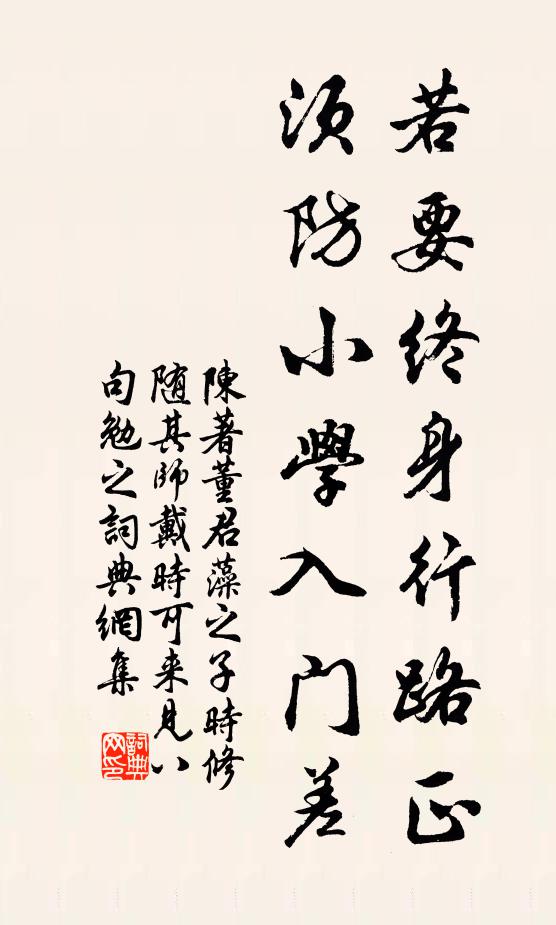 若要终身行路正
须防小學入门差
陳著董君藻之子時修
随其師戴時可来見八
句勉之詞典網集
詞典网印